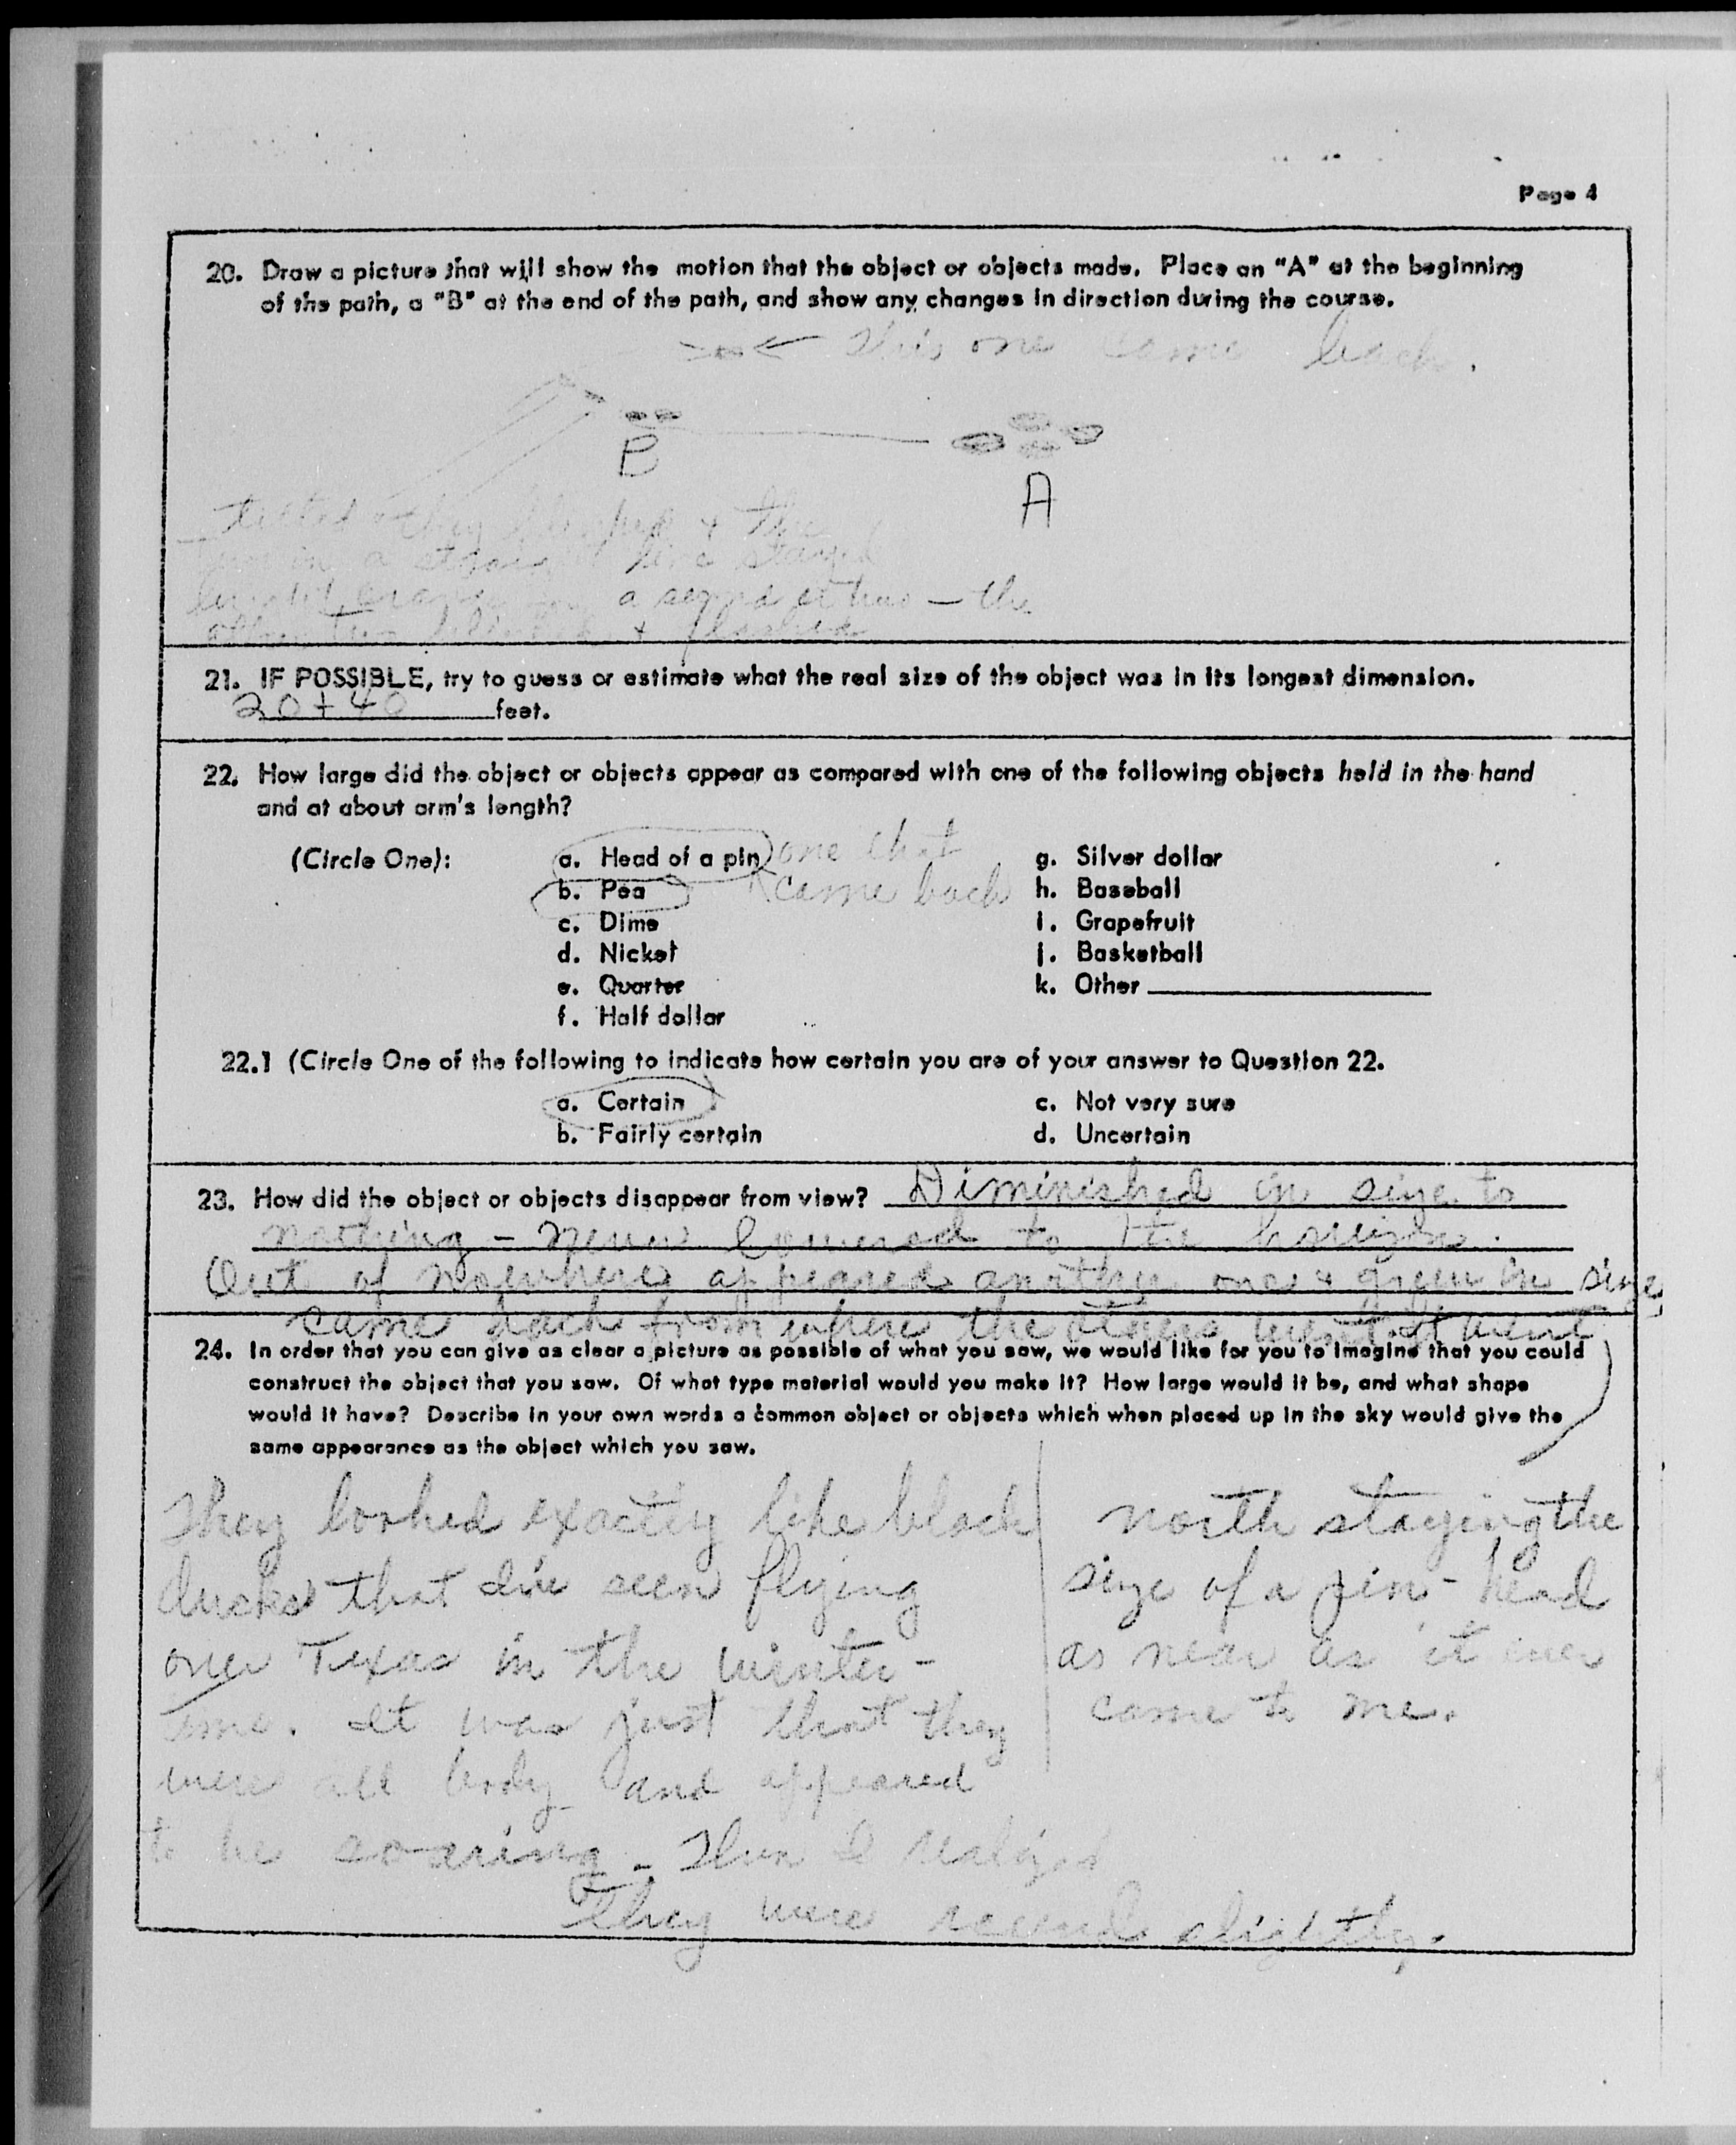 Page 4
20. Draw a picture that will show the motion that the object or objects made. Place an "A" at the beginning
of the path, a "B" at the end of the path, and show any changes in direction during the course.
← This one came back.
B
A
tilted & they & the
in a straight line stayed
a second or two — the
other two & flashed
21. IF POSSIBLE, try to guess or estimate what the real size of the object was in its longest dimension.
20 + 40 feet.
22. How large did the object or objects appear as compared with one of the following objects held in the hand
and at about arm's length?
(Circle One):
a. Head of a pin one that
b. Pea came back
c. Dime
d. Nickel
e. Quarter
f. Half dollar
g. Silver dollar
h. Baseball
i. Grapefruit
j. Basketball
k. Other
22.1 (Circle One of the following to indicate how certain you are of your answer to Question 22.
a. Certain
b. Fairly certain
c. Not very sure
d. Uncertain
23. How did the object or objects disappear from view? Diminished in size to
nothing - never lowered to the horizon.
Out of nowhere appeared another one & grew in size
came back from where the others went. It went
24. In order that you can give as clear a picture as possible of what you saw, we would like for you to imagine that you could
construct the object that you saw. Of what type material would you make it? How large would it be, and what shape
would it have? Describe in your own words a common object or objects which when placed up in the sky would give the
same appearance as the object which you saw.
They looked exactly like black
ducks that I've seen flying
over Texas in the winter-
time. It was just that they
were all body and appeared
to be soaring - Then I realized
They were round slightly.
north staying the
size of a pin-head
as near as it ever
came to me.